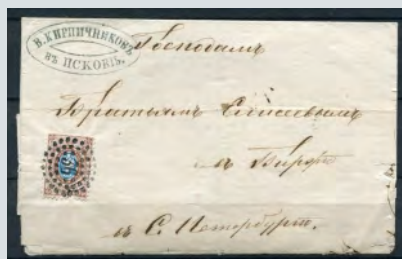 В. КИРПИЧНИКОВЪ
ВЪ ПСКОВѢ.
Господамъ
Братьямъ Елисеевымъ
въ С. Петербургѣ.